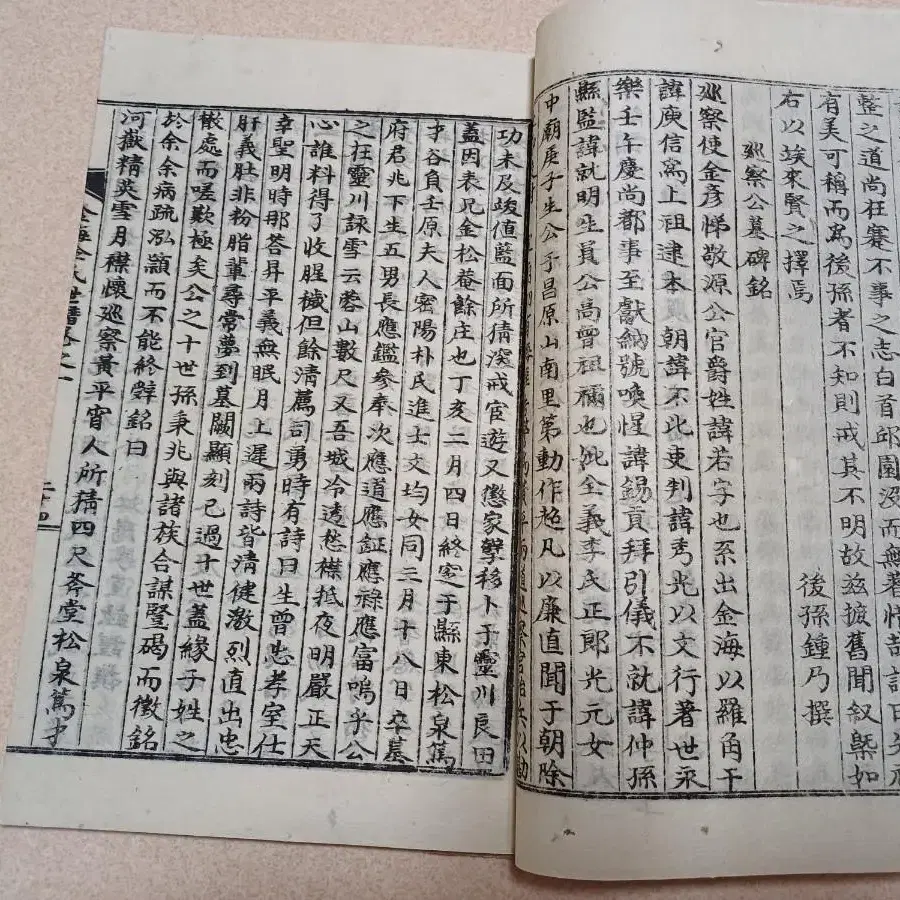 整之道尚在蹇不事之志白首邱園沒而無著惜哉
有美可稱而爲後孫者不知則戒其不明故玆摭舊聞叙槩如
右以竢來賢之擇焉
後孫鍾乃撰
巡察公墓碑銘
巡察使金彦悌敬源公官爵姓諱若字也系出金海以羅角干
諱庾信爲上祖逮本朝諱不此吏判諱秀光以文行著世宗
樂壬午慶尚都事至獻納號喚惺諱錫貢拜引儀不就諱仲孫
縣監諱就明生員公高曾祖禰也妣全義李氏正郎光元女
中廟庚子生公于昌原山南里第動作超凡以廉直聞于朝除
功未及竣値藍面所猜深戒宦遊又懲家孽移卜于靈川良田
盖因表兄金松菴餘庄也丁亥二月四日終窆于縣東松泉篤
才谷負壬原夫人密陽朴氏進士文均女同三月十八日卒墓
府君兆下生五男長應鑑參奉次應道應鉦應祿應富嗚乎公
之在靈川詠雪云蓉山數尺又吾城冷透愁襟抵夜明嚴正天
心誰料得了收腥穢但餘淸薦司勇時有詩曰生曾忠孝室仕
幸聖明時那答昇平義無眠月上遲兩詩皆淸健激烈直出忠
肝義肚非粉脂輩尋常夢到墓闕顯刻已過十世盖緣子姓之
散處而嗟歎極矣公之十世孫秉兆與諸族合謀竪碣而徵銘
於余余病疏泓潁而不能終辭銘曰
河嶽精英雪月襟懷巡察黃平宵人所猜四尺斧堂松泉篤才
金海金氏世譜卷之一
二十四